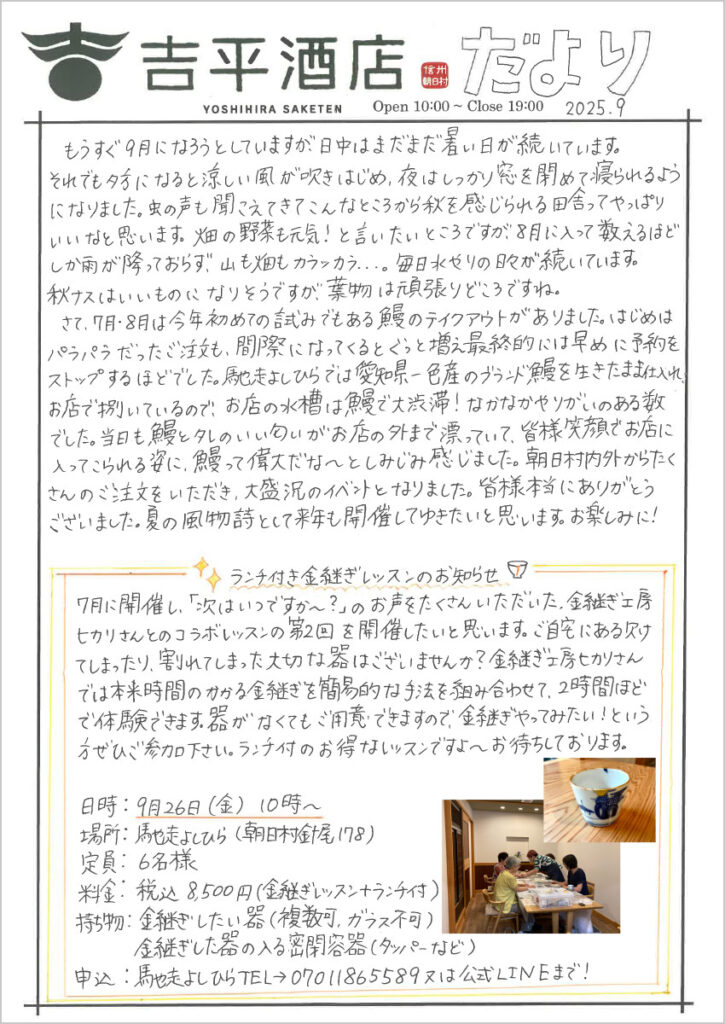 吉平酒店
信州朝日村
だより
YOSHIHIRA SAKETEN
Open 10:00 ~ Close 19:00
2025.9
もうすぐ9月になろうとしていますが、日中はまだまだ暑い日が続いています。
それでも夕方になると涼しい風が吹きはじめ、夜はしっかり窓を閉めて寝られるよう
になりました。虫の声も聞こえてきてこんなところから秋を感じられる田舎ってやっぱり
いいなと思います。畑の野菜も元気!と言いたいところですが、8月に入って数えるほど
しか雨が降っておらず、山も畑もカラッカラ...。毎日水やりの日々が続いています。
秋ナスはいいものになりそうですが、葉物は頑張りどころですね。
さて、7月・8月は今年初めての試みでもある鰻のテイクアウトがありました。はじめは
パラパラだったご注文も、間際になってくるとぐっと増え最終的には早めに予約を
ストップするほどでした。馳走よしひらでは愛知県一色産のブランド鰻を生きたまま仕入れ、
お店で捌いているので、お店の水槽は鰻で大渋滞!なかなかやりがいのある数
でした。当日も鰻とタレのいい匂いがお店の外まで漂っていて、皆様笑顔でお店に
入ってこられる姿に、鰻って偉大だな〜としみじみ感じました。朝日村内外からたく
さんのご注文をいただき、大盛況のイベントとなりました。皆様本当にありがとう
ございました。夏の風物詩として来年も開催してゆきたいと思います。お楽しみに!
ランチ付き金継ぎレッスンのお知らせ
7月に開催し、「次はいつですか〜?」のお声をたくさんいただいた、金継ぎ工房
ヒカリさんとのコラボレッスンの第2回を開催したいと思います。ご自宅にある欠け
てしまったり、割れてしまった大切な器はございませんか?金継ぎ工房ヒカリさん
では本来時間のかかる金継ぎを簡易的な手法を組み合わせて、2時間ほど
で体験できます。器がなくてもご用意できますので、金継ぎやってみたい!という
方ぜひご参加下さい。ランチ付のお得なレッスンですよ〜お待ちしております。
日時:9月26日(金) 10時〜
場所:馳走よしひら(朝日村針尾178)
定員:6名様
料金:税込8,500円(金継ぎレッスン+ランチ付)
持ち物:金継ぎしたい器(複数可、ガラス不可)
金継ぎした器の入る密閉容器(タッパーなど)
申込:馳走よしひらTEL→07011865589又は公式LINEまで!